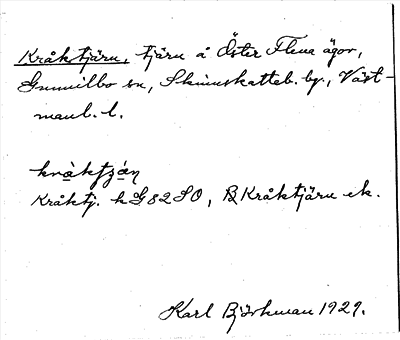 Kråktjärn, tjärn å Öster Flena ägor,
Gunnilbo sn, Skinnskatteb. bg., Väst-
manl. l.
kràktján
Kråktj. hG82SO, B Kråktjärn ek.
Karl Björkman 1929.